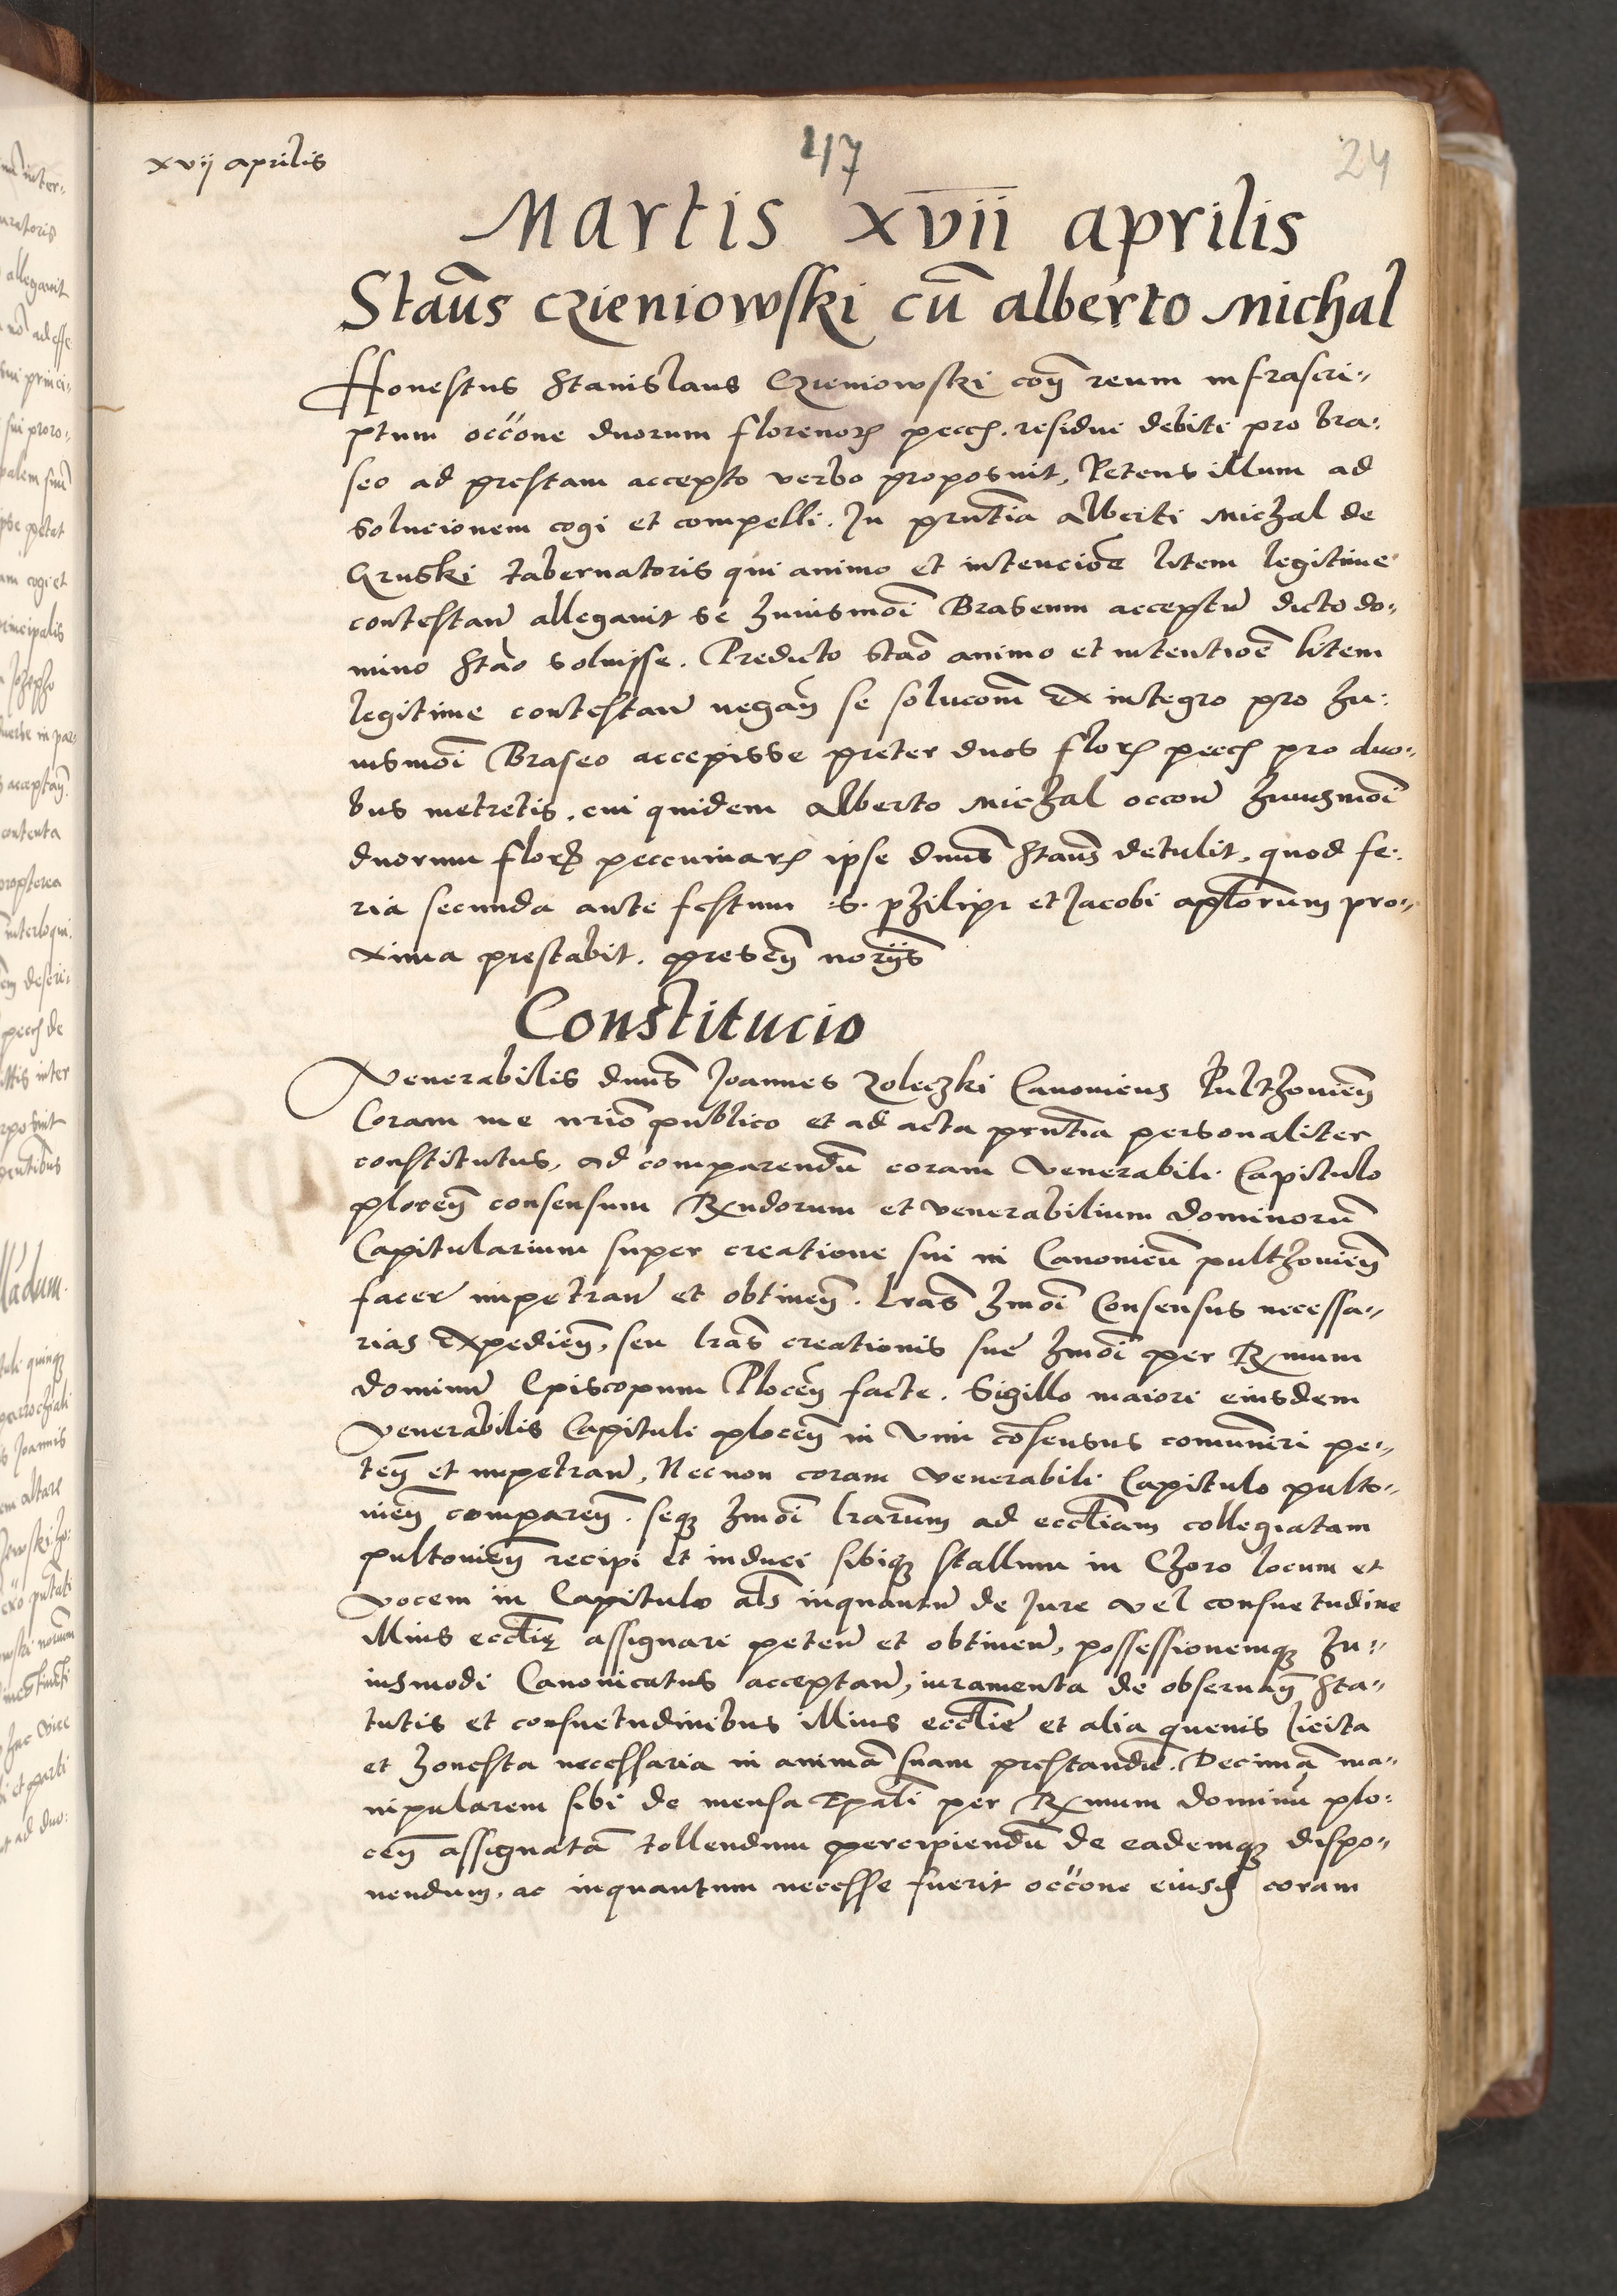 xvij aprilis
47
24
Martis xvii aprilis
Stañs czieniowski cũ alberto Michal
Honestus Stanislaus Czieniowski coñ reum infrascri„
ptum occõne duorum florenorũ pecc. residue debite pro bra:
seo ad prestam accepto verbo proposuit, Petens illum ad
solucionem cogi et compelli. In prñtia Alberti Michal de
Gruski tabernatoris qui animo et intencioẽ litem legitime
contestañ allegauit se huiusmõi Braseum acceptũ dicto do„
mino Stão soluisse. Predicto Stão animo et intentioẽ litem
legitime contestañ negañ se solucõm ex integro pro hu:
iusmõi Braseo accepisse preter duos florũ pecc pro duo„
bus metretis, cui quidem Alberto Michal occoñ huiusmõi
duorum florũ peccuniarũ ipse dñus Stañs detulit, quod fe:
ria secunda ante festum .S. philipi et Jacobi aplorum pro„
xima prestabit. preseñ norijs
Constitucio
Venerabilis dñus Joannes Zoleczki Canonicus Pulthovieñ
Coram me nrio publico et ad acta prñtia personaliter
constitutus, ad comparendũ coram Venerabili Capitulo
ploceñ consensum Rxndorum et venerabilium dominorũ
Capitularium super creatione sui in Canonicũ pulthovieñ
facer impetrañ et obtineñ. lras hmõi Consensus necessa„
rias expedieñ, seu lras creationis sue hmõi per Rxmum
dominũ Episcopum Ploceñ facte. Sigillo maiori eiusdem
Venerabilis Capituli ploceñ in vim cõsensus comuniri pe„
teñ et impetrañ, Necnon coram venerabili Capitulo pulto„
vieñ compareñ. seq; hmõi lrarum ad eccliam collegiatam
pultovieñ recipi et induci sibiq; stallum in Choro locum et
vocem in Capitulo als inquantũ de Jure vel consuetudine
illius ecclie assignari peteñ et obtineñ, possessionemq; hu„
iusmodi Canonicatus acceptañ, iuramenta de obseruañ sta„
tutis et consuetudinibus illius ecclie et alia queuis licita
et honesta necessaria in animã suam prestandũ. Decimã ma„
nipularem sibi de mensa Epali per Rxmum dominũ plo:
ceñ assignatã tollendum percipiendũ de eademq; dispo„
nendum, ac inquantum necesse fuerit occõne eiusd coram